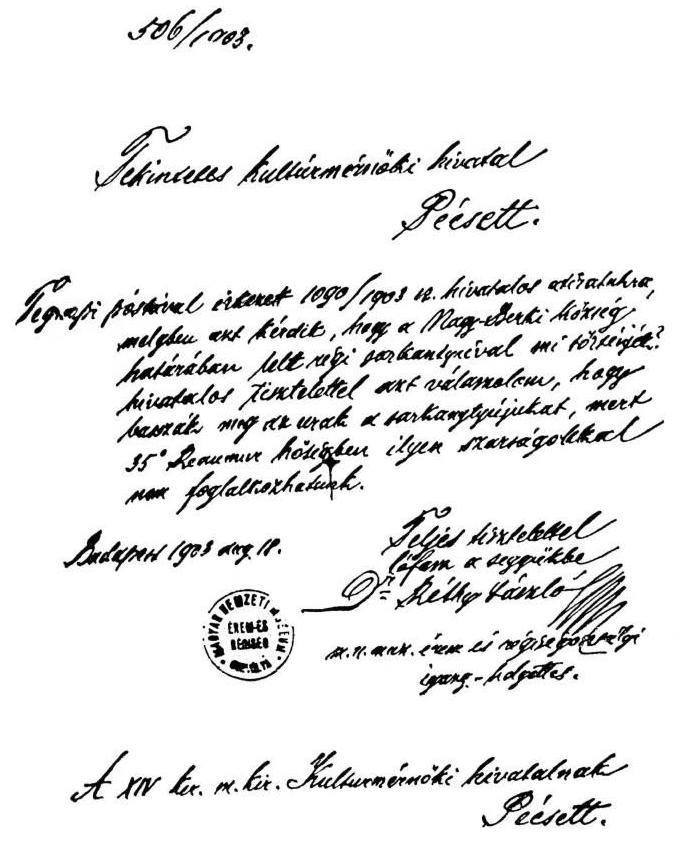 506/1903.
Tekintetes kultúrmérnöki hivatal
Pécsett.
Tegnapi póstával érkezet 1090/1903 sz. hivatalos átiratukra,
melyben azt kérdik, hogy a Nagy-Berki község
határában lelt régi sarkantyúval mi történjék?
hivatalos Tisztelettel azt válaszolom, hogy
basszák meg az urak a sarkantyújukat, mert
35° Reaumur hőségben ilyen szarságokkal
nem foglalkozhatunk.
Budapest 1903 aug. 18.
Teljes tisztelettel
lófasz a seggükbe
Dr Réthy László
m. n. muz. érem és régiségosztályi
igazg.-helyettes.
MAGYAR NEMZETI MUZEUM
ÉREM-ÉS
RÉGISÉG
A XIV ker. m. kir. Kulturmérnöki hivatalnak
Pécsett.